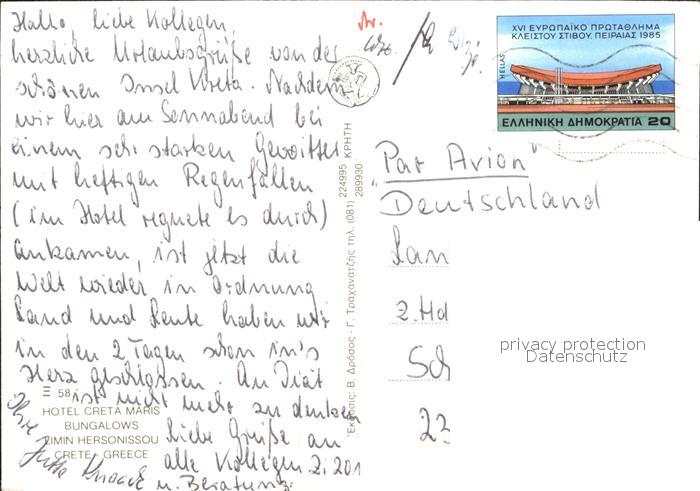 Hallo, liebe Kollegen,
herzliche Urlaubsgrüße von der
schönen Insel Kreta. Nachdem
wir hier am Sonnabend bei
einem sehr starken Gewitter
mit heftigen Regenfällen
(im Hotel regnete es durch)
ankamen, ist jetzt die
Welt wieder in Ordnung
Land und Leute haben wir
in den 2 Tagen schon in's
Herz geschlossen. An Diät
ist nicht mehr zu denken
Liebe Grüße an
alle Kollegen Zi 201
u. Beratung
Ihre
Jutta
Ξ 58
HOTEL CRETA MARIS
BUNGALOWS
LIMIN HERSONISSOU
CRETE, GREECE
Ἐκδόσεις: Β. Δρόσος - Γ. Τραχανατζῆς τηλ. (081) 224995 ΚΡΗΤΗ
289930
XVI ΕΥΡΩΠΑΪΚΟ ΠΡΩΤΑΘΛΗΜΑ
ΚΛΕΙΣΤΟΥ ΣΤΙΒΟΥ, ΠΕΙΡΑΙΑΣ 1985
HELLAS
ΕΛΛΗΝΙΚΗ ΔΗΜΟΚΡΑΤΙΑ 20
"Par Avion"
Deutschland
Lan
z.Hd
Sch
22
privacy protection
Datenschutz